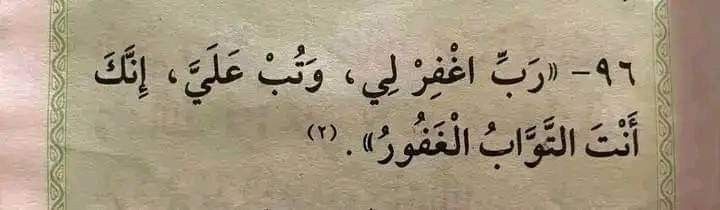 ٩٦- «رَبِّ اغْفِرْ لِي، وَتُبْ عَلَيَّ، إِنَّكَ
أَنْتَ التَّوَّابُ الْغَفُورُ». (٢)